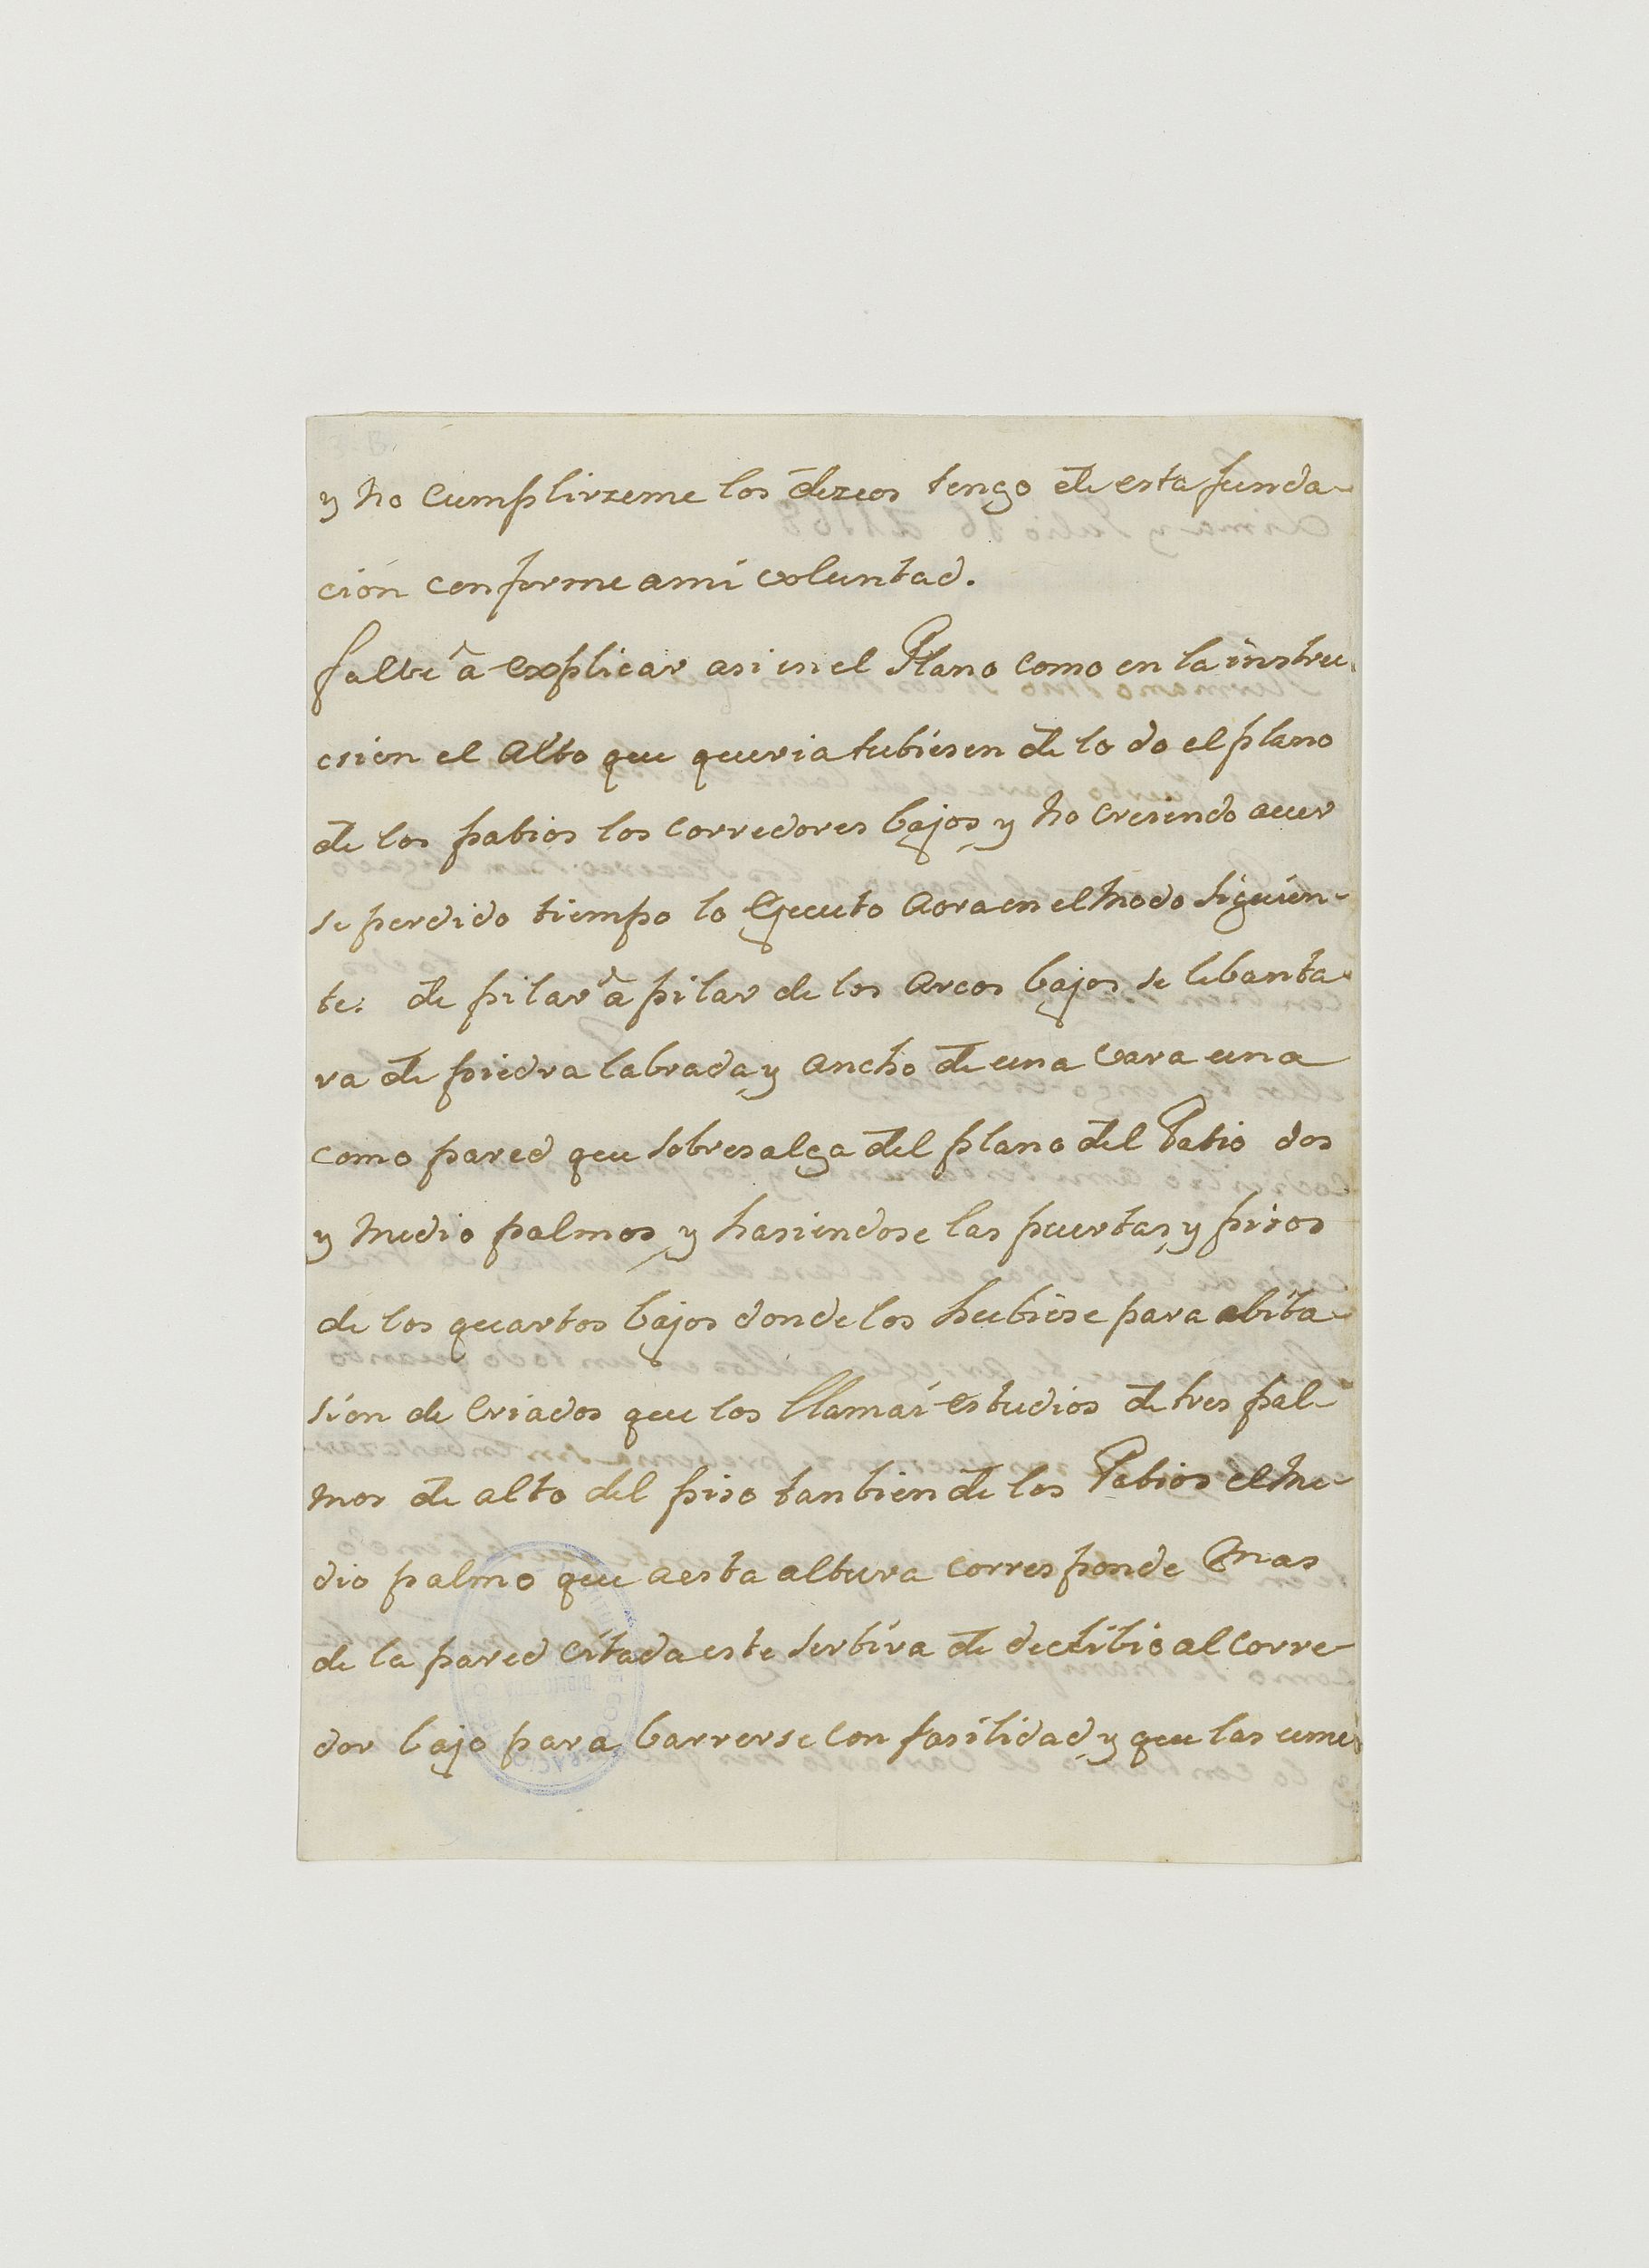 y no cumplirzeme los dezeos tengo de esta funda-
ción conforme a mi voluntad.
falte à explicar asi en el Plano como en la instru-
csion el Alto que queria tubiesen de lo do el plano
de los patios los corredores bajos y no creiendo aver
se perdido tiempo lo Ejecuto Aora en el modo siguien-
te: de pilar à pilar de los Arcos bajos se lebanta-
ra de piedra labrada y ancho de una vara una
como pared que sobresalga del plano del Patio dos
y medio palmos y hasiendose las puertas y pisos
de los quartos bajos donde los hubiese para abita-
sion de criados que los llamai estudios de tres pal-
mos de alto del piso tanbien de los Patios el me-
dio palmo que a esta altura corresponde mas
de la pared citada este serbira de declibio al corre-
dor bajo para barrerse con fasilidad y que las ume-